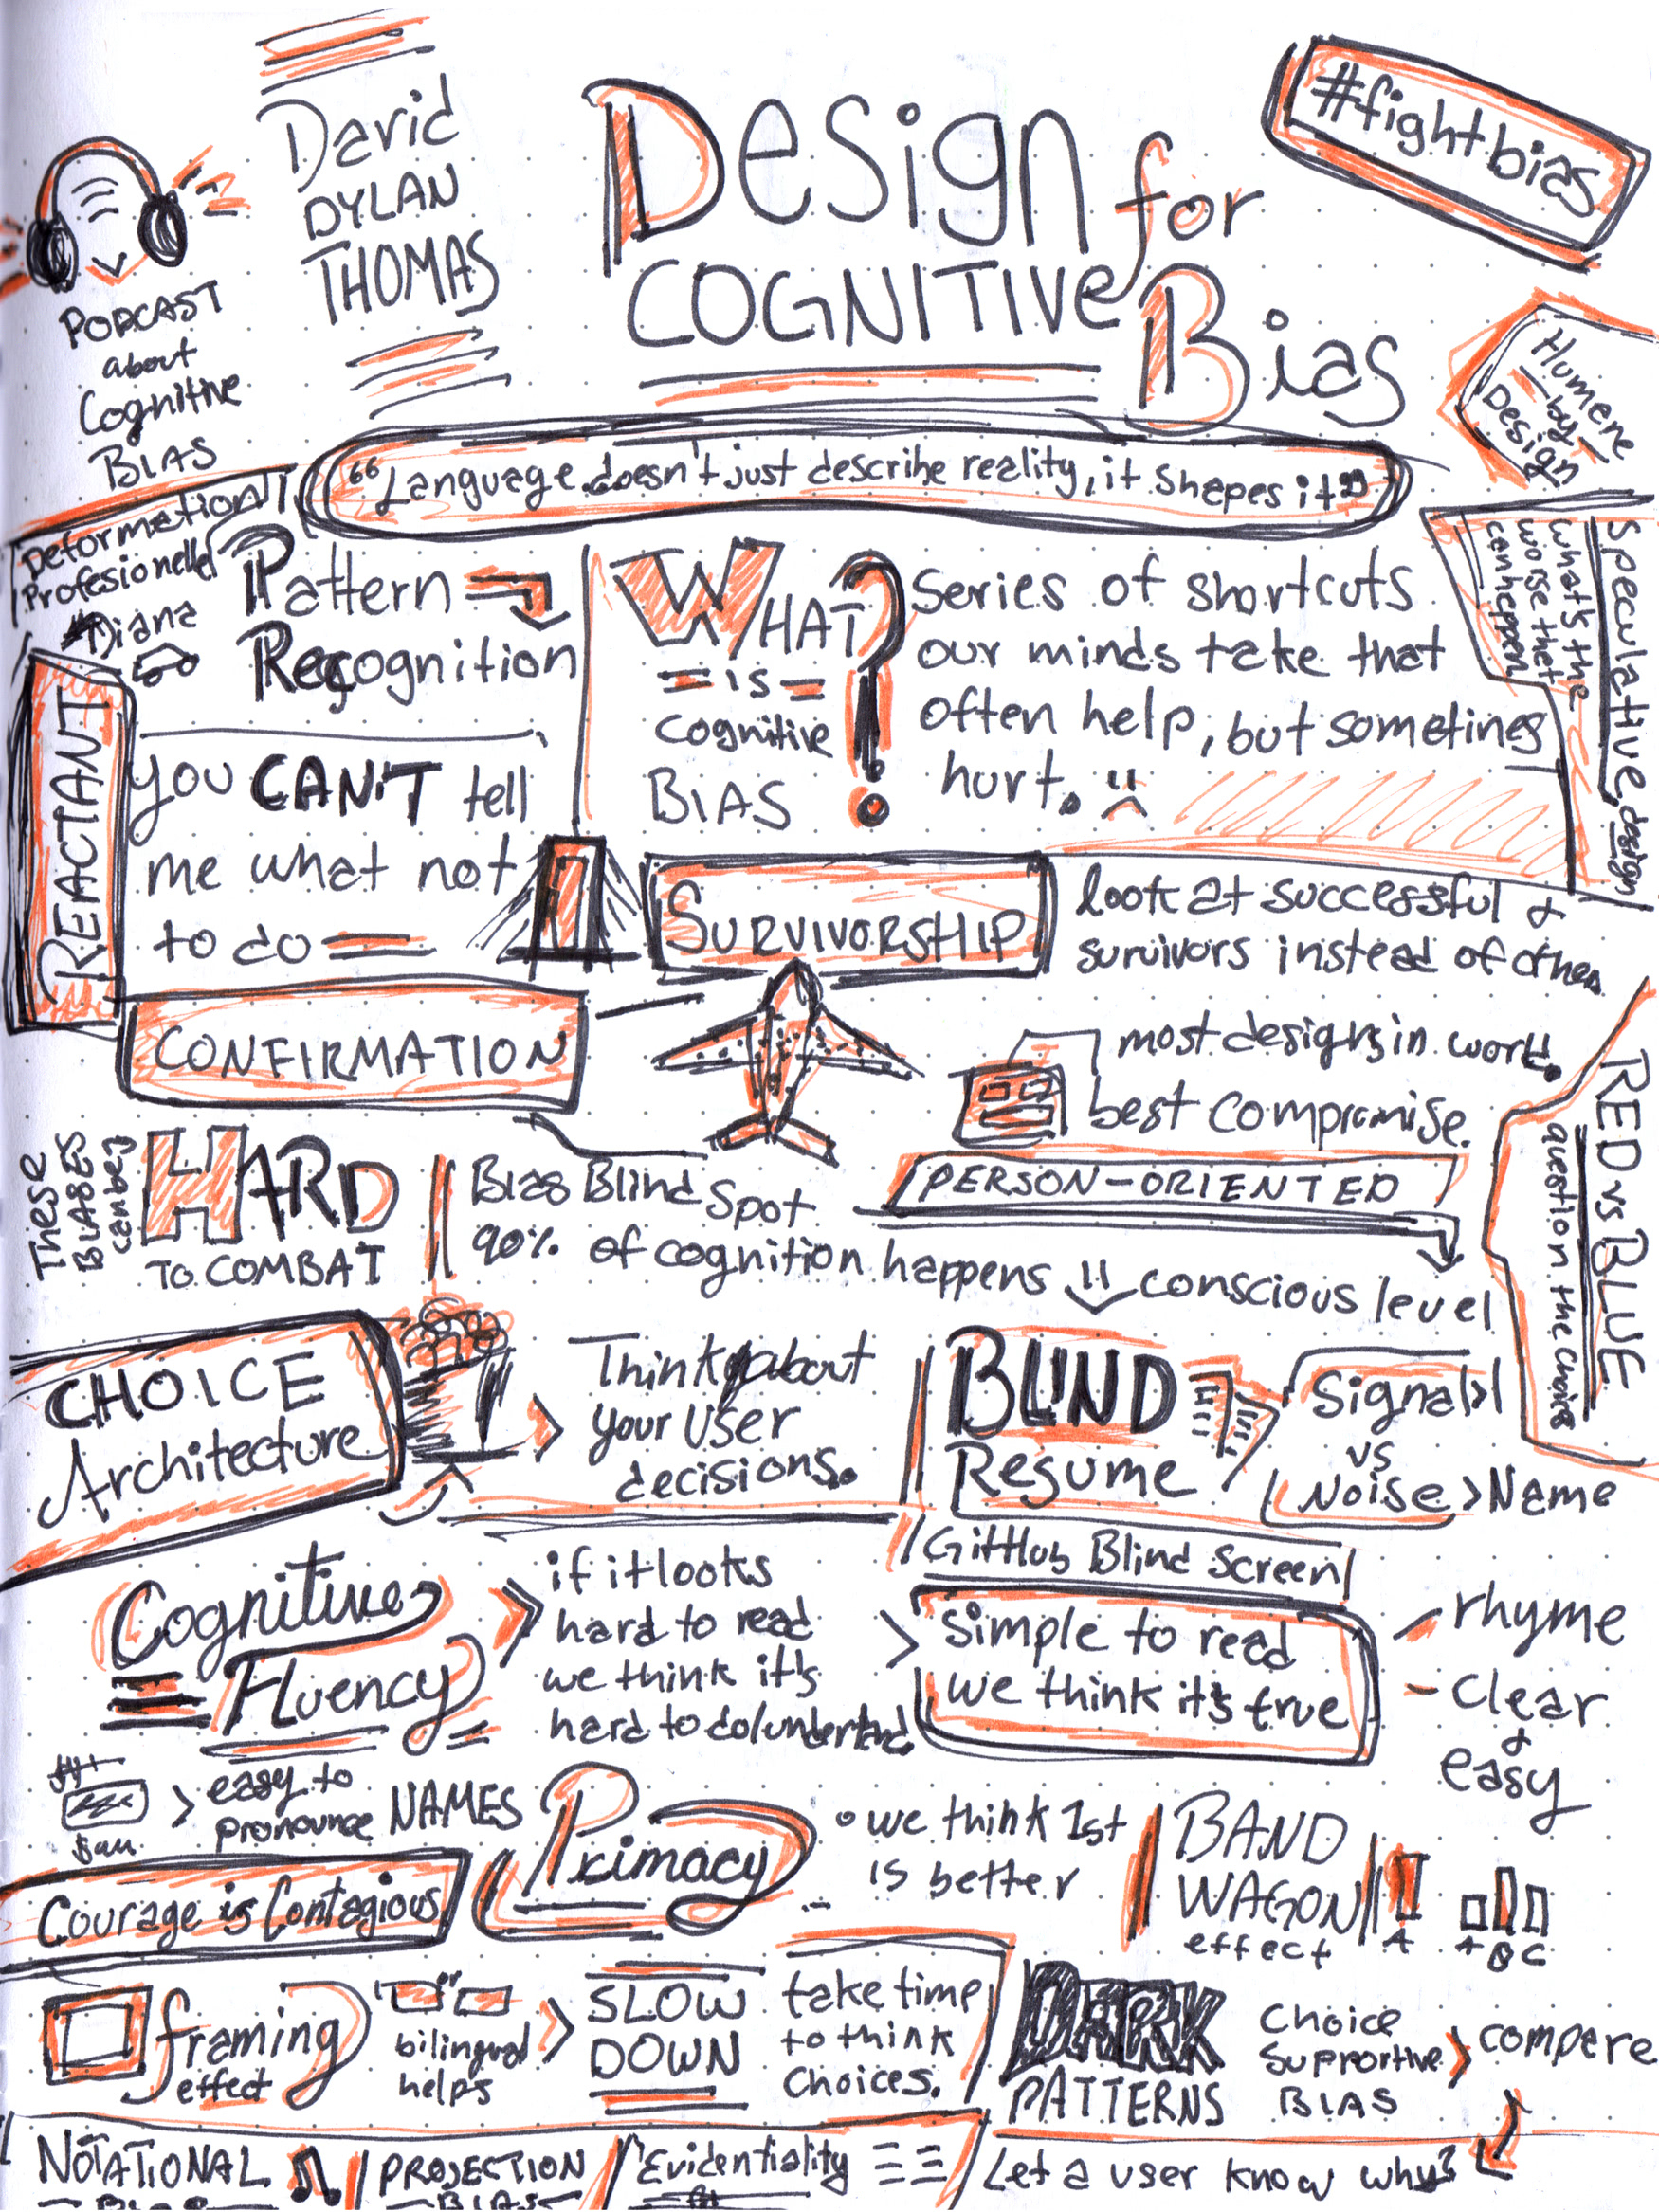 David
DYLAN
THOMAS
Design for
COGNITIVE
Bias
#fightbias
PODCAST
about
Cognitive
BIAS
Humane
by
Design
"Language doesn't just describe reality, it shapes it"
Deformation
Profesionelle
Diana
Pattern
Recognition
WHAT
is
Cognitive
BIAS
?
Series of shortcuts
our minds take that
often help, but sometimes
hurt.
Speculative design
what's the
worse that
can happen
REACTANT
you CAN'T tell
me what not
to do
SURVIVORSHIP
look at successful &
survivors instead of other
CONFIRMATION
most designs in world.
best compromise.
PERSON-ORIENTED
RED vs BLUE
question the choice
These
BIASES
can be
HARD
TO COMBAT
Bias Blind Spot
90% of cognition happens conscious level
CHOICE
Architecture
Think about
your user
decisions.
BLIND
Resume
Signal >
vs
Noise > Name
GitHub Blind Screen
Cognitive
Fluency
if it looks
hard to read
we think it's
hard to do/understand
simple to read
we think it's true
- rhyme
- clear
&
easy
> easy to
pronounce NAMES
Courage is Contagious
Primacy
we think 1st
is better
BAND
WAGON
effect
A
A B C
framing
effect
bilingual
helps
SLOW
DOWN
take time
to think
choices.
DARK
PATTERNS
Choice
Supportive
BIAS
> compare
NOTATIONAL
BIAS
PROJECTION
BIAS
Evidentiality
Let a user know why?